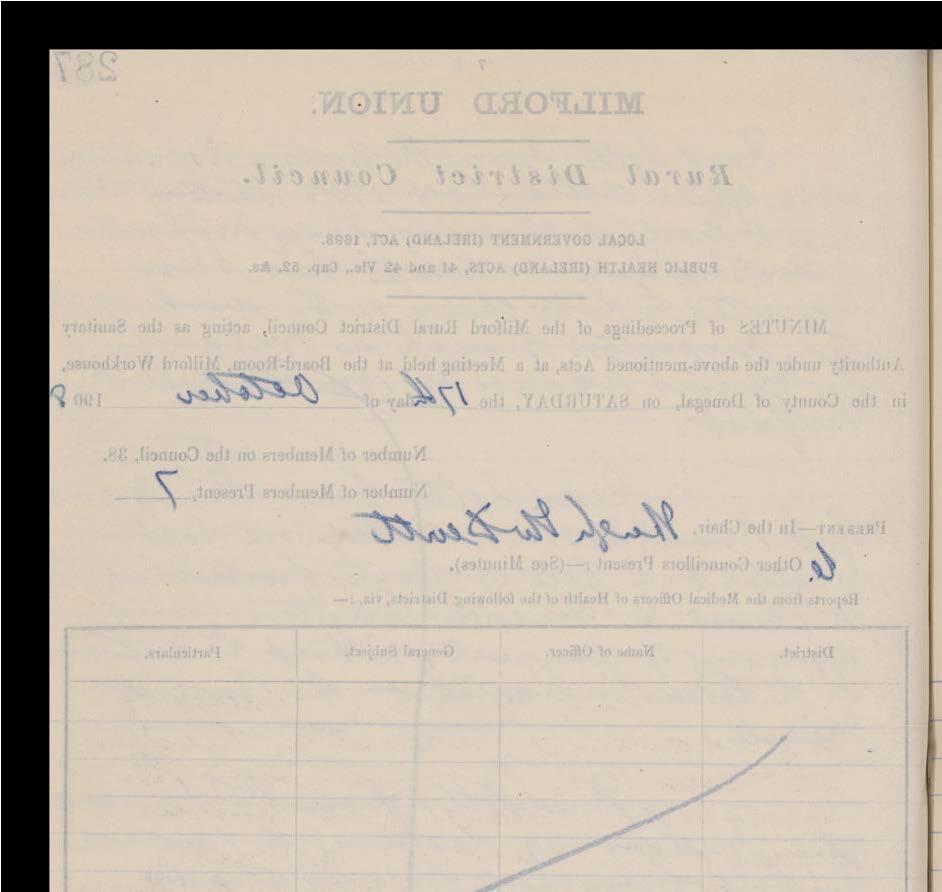 287
MILFORD UNION.
Rural District Council.
LOCAL GOVERNMENT (IRELAND) ACT, 1898.
PUBLIC HEALTH (IRELAND) ACTS, 41 and 42 Vic., Cap. 52, &c.
MINUTES of Proceedings of the Milford Rural District Council, acting as the Sanitary
Authority under the above-mentioned Acts, at a Meeting held at the Board-Room, Milford Workhouse,
in the County of Donegal, on SATURDAY, the 17th day of October 1908
Number of Members on the Council, 38.
Number of Members Present, 7
PRESENT—In the Chair, Hugh McDevitt
6 Other Councillors Present :—(See Minutes).
Reports from the Medical Officers of Health of the following Districts, viz. :—
District. Name of Officer. General Subject. Particulars.